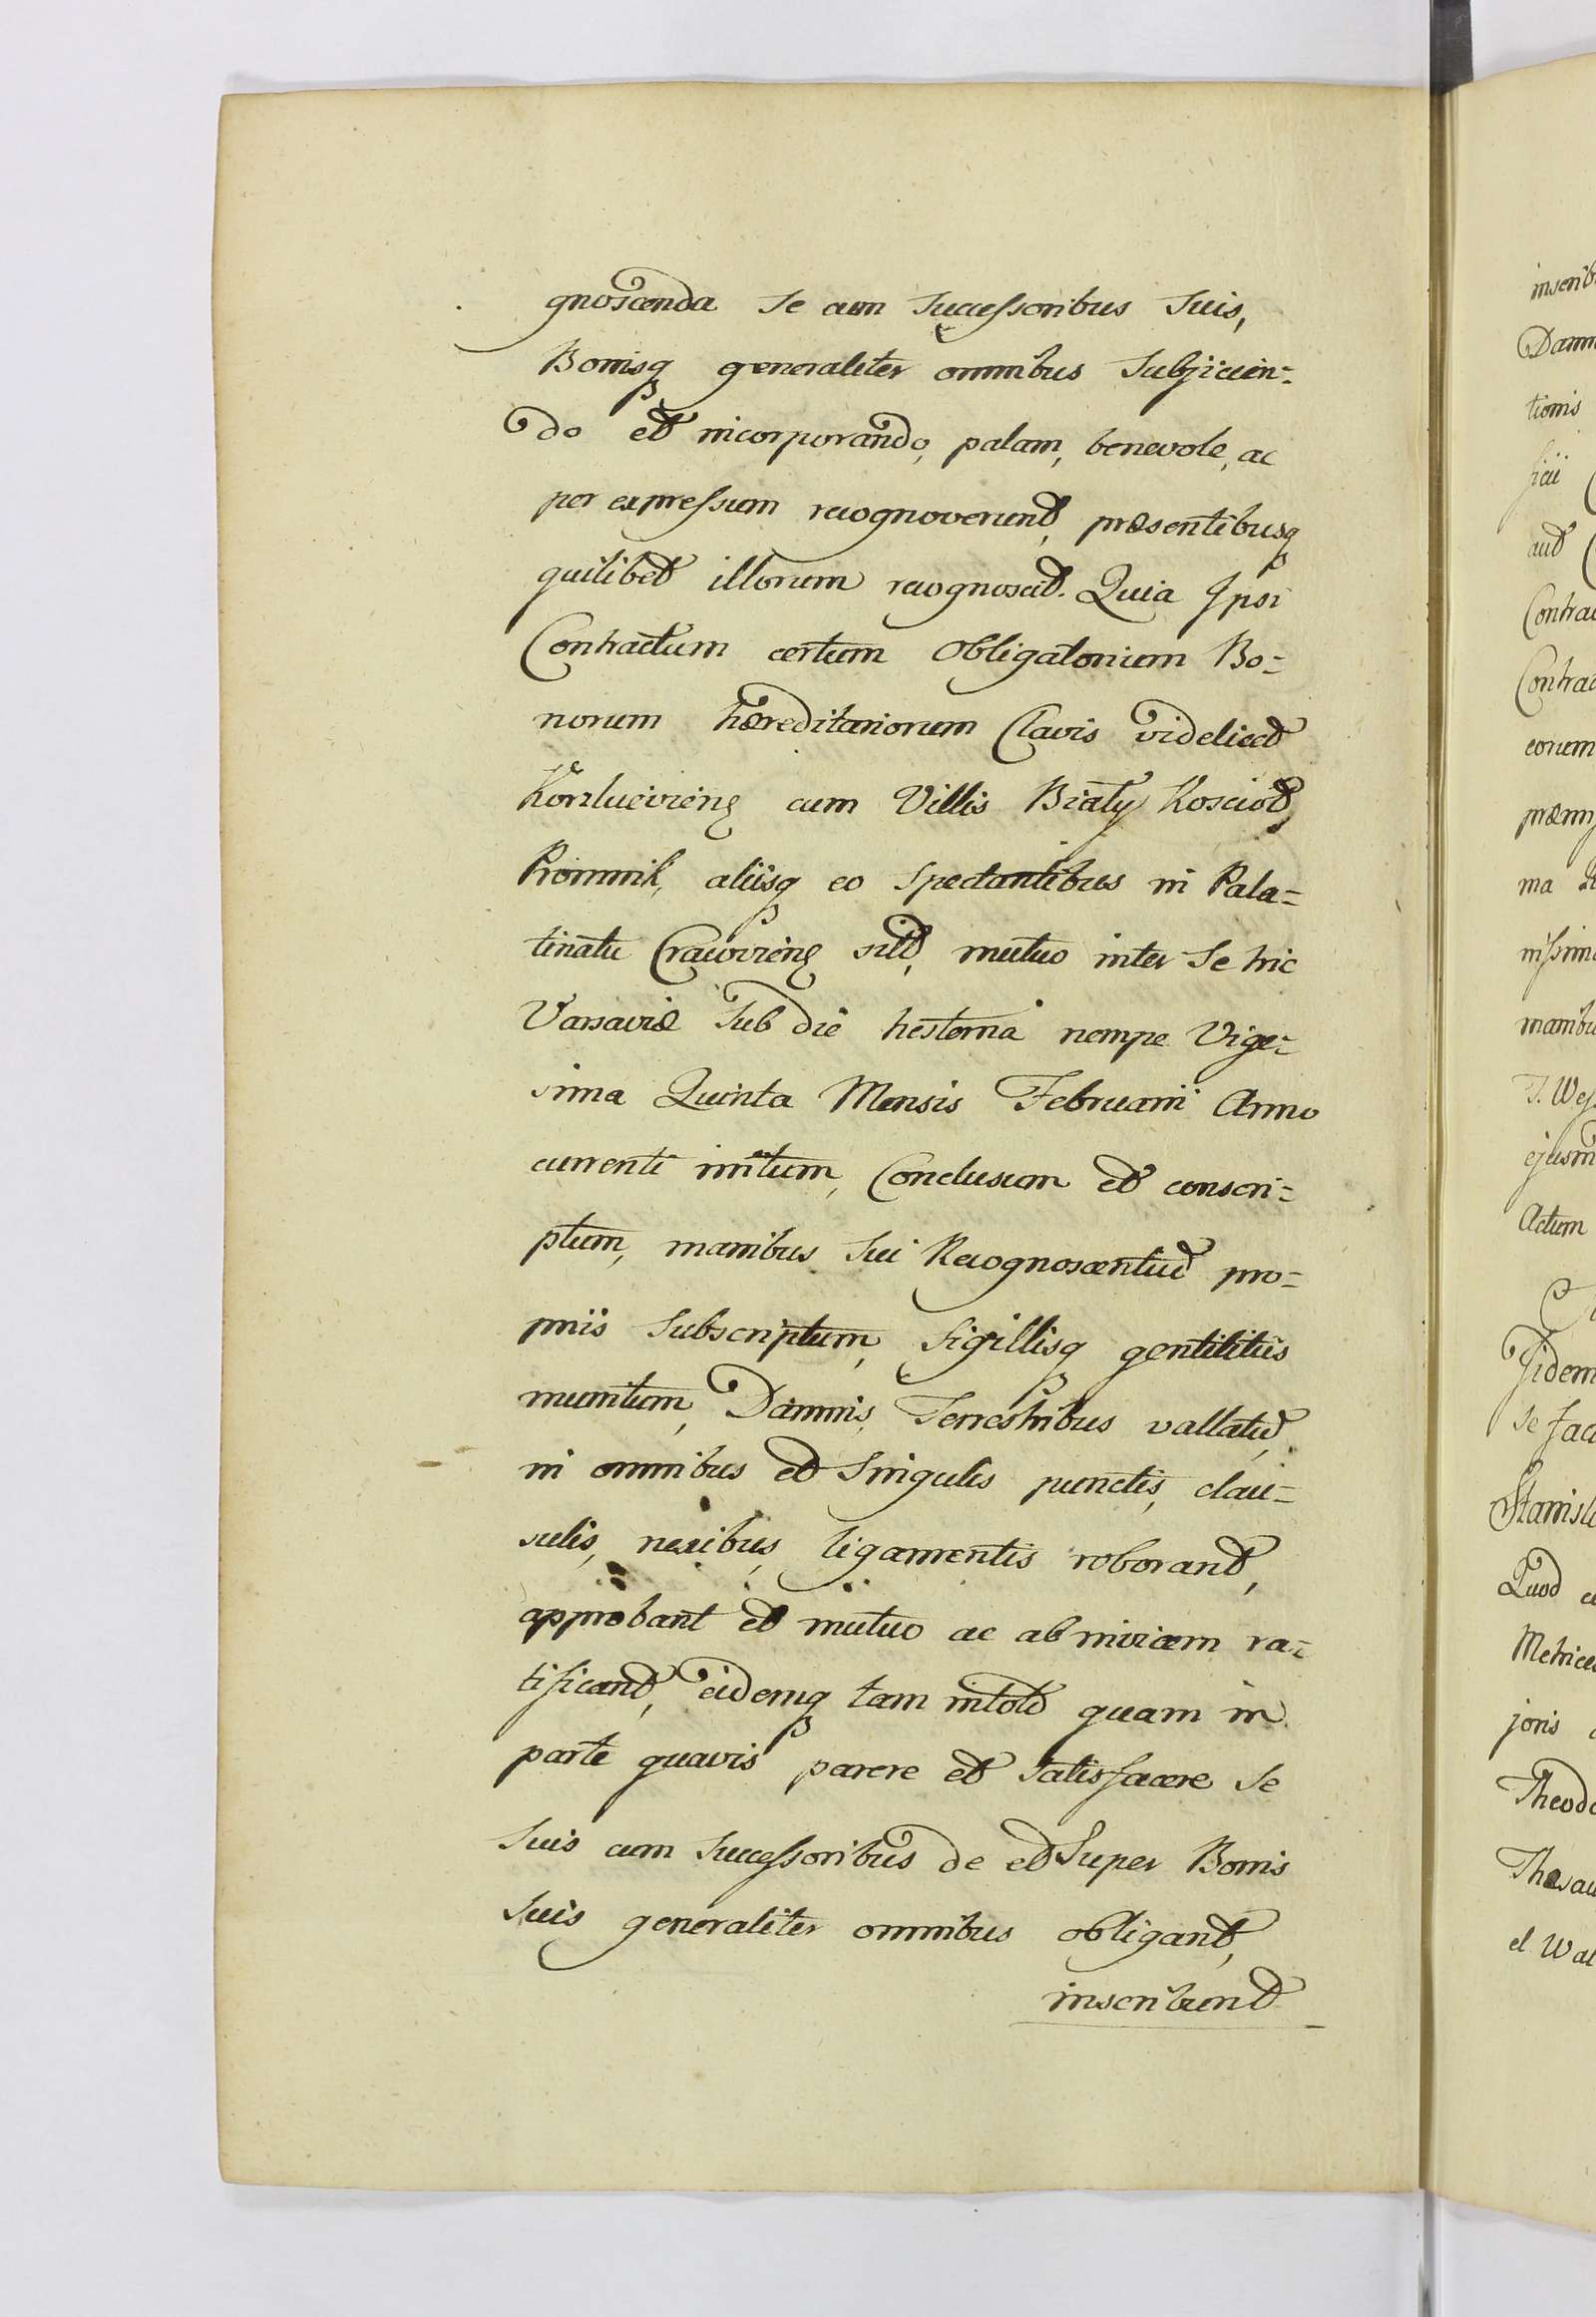 gnoscenda Se cum Successoribus Suis,
Bonisq generaliter omnibus Subjicien=
do et incorporando, palam, benevole, ac
per expressum recognoverunt, præsentibusq
quilibet illorum recognoscit. Quia Ipsi
Contractum certum Obligatorium Bo=
norum hæreditariorum Clavis videlicet
cum Villis Biały Koscioł,
aliisq eo Spectantibus in Pala=
tinatu Cracovien sitt, mutuo inter Se hic
Varsaviæ Sub die hesterna nempe Vige=
sima Quinta Mensis Februarii Anno
currenti initum, Conclusum et conscri=
ptum, manibus Sui Recognoscentium pro=
priis Subscriptum, Sigillisq gentilitiis
munitum, Damnis Terrestribus vallatum,
in omnibus et Singulis punctis, clau=
sulis, nexibus, ligamentis roborant,
approbant et mutuo ac ab invicem ra=
tificant, eidemq tam intoto quam in
parte quavis parere et Satisfacere Se
Suis cum Successoribus de et Super Bonis
Suis generaliter omnibus obligant,
inscribunt
inscrib
Damn
tionis
ficii
aut
Contrac
Contrac
eorum
præm
ma
nissima
manibu
T. Wes
ejusm
Actum
Iidem
Se fac
Stanisl
Quod
Metrices
joris
Theodo
Thesau
et Wal